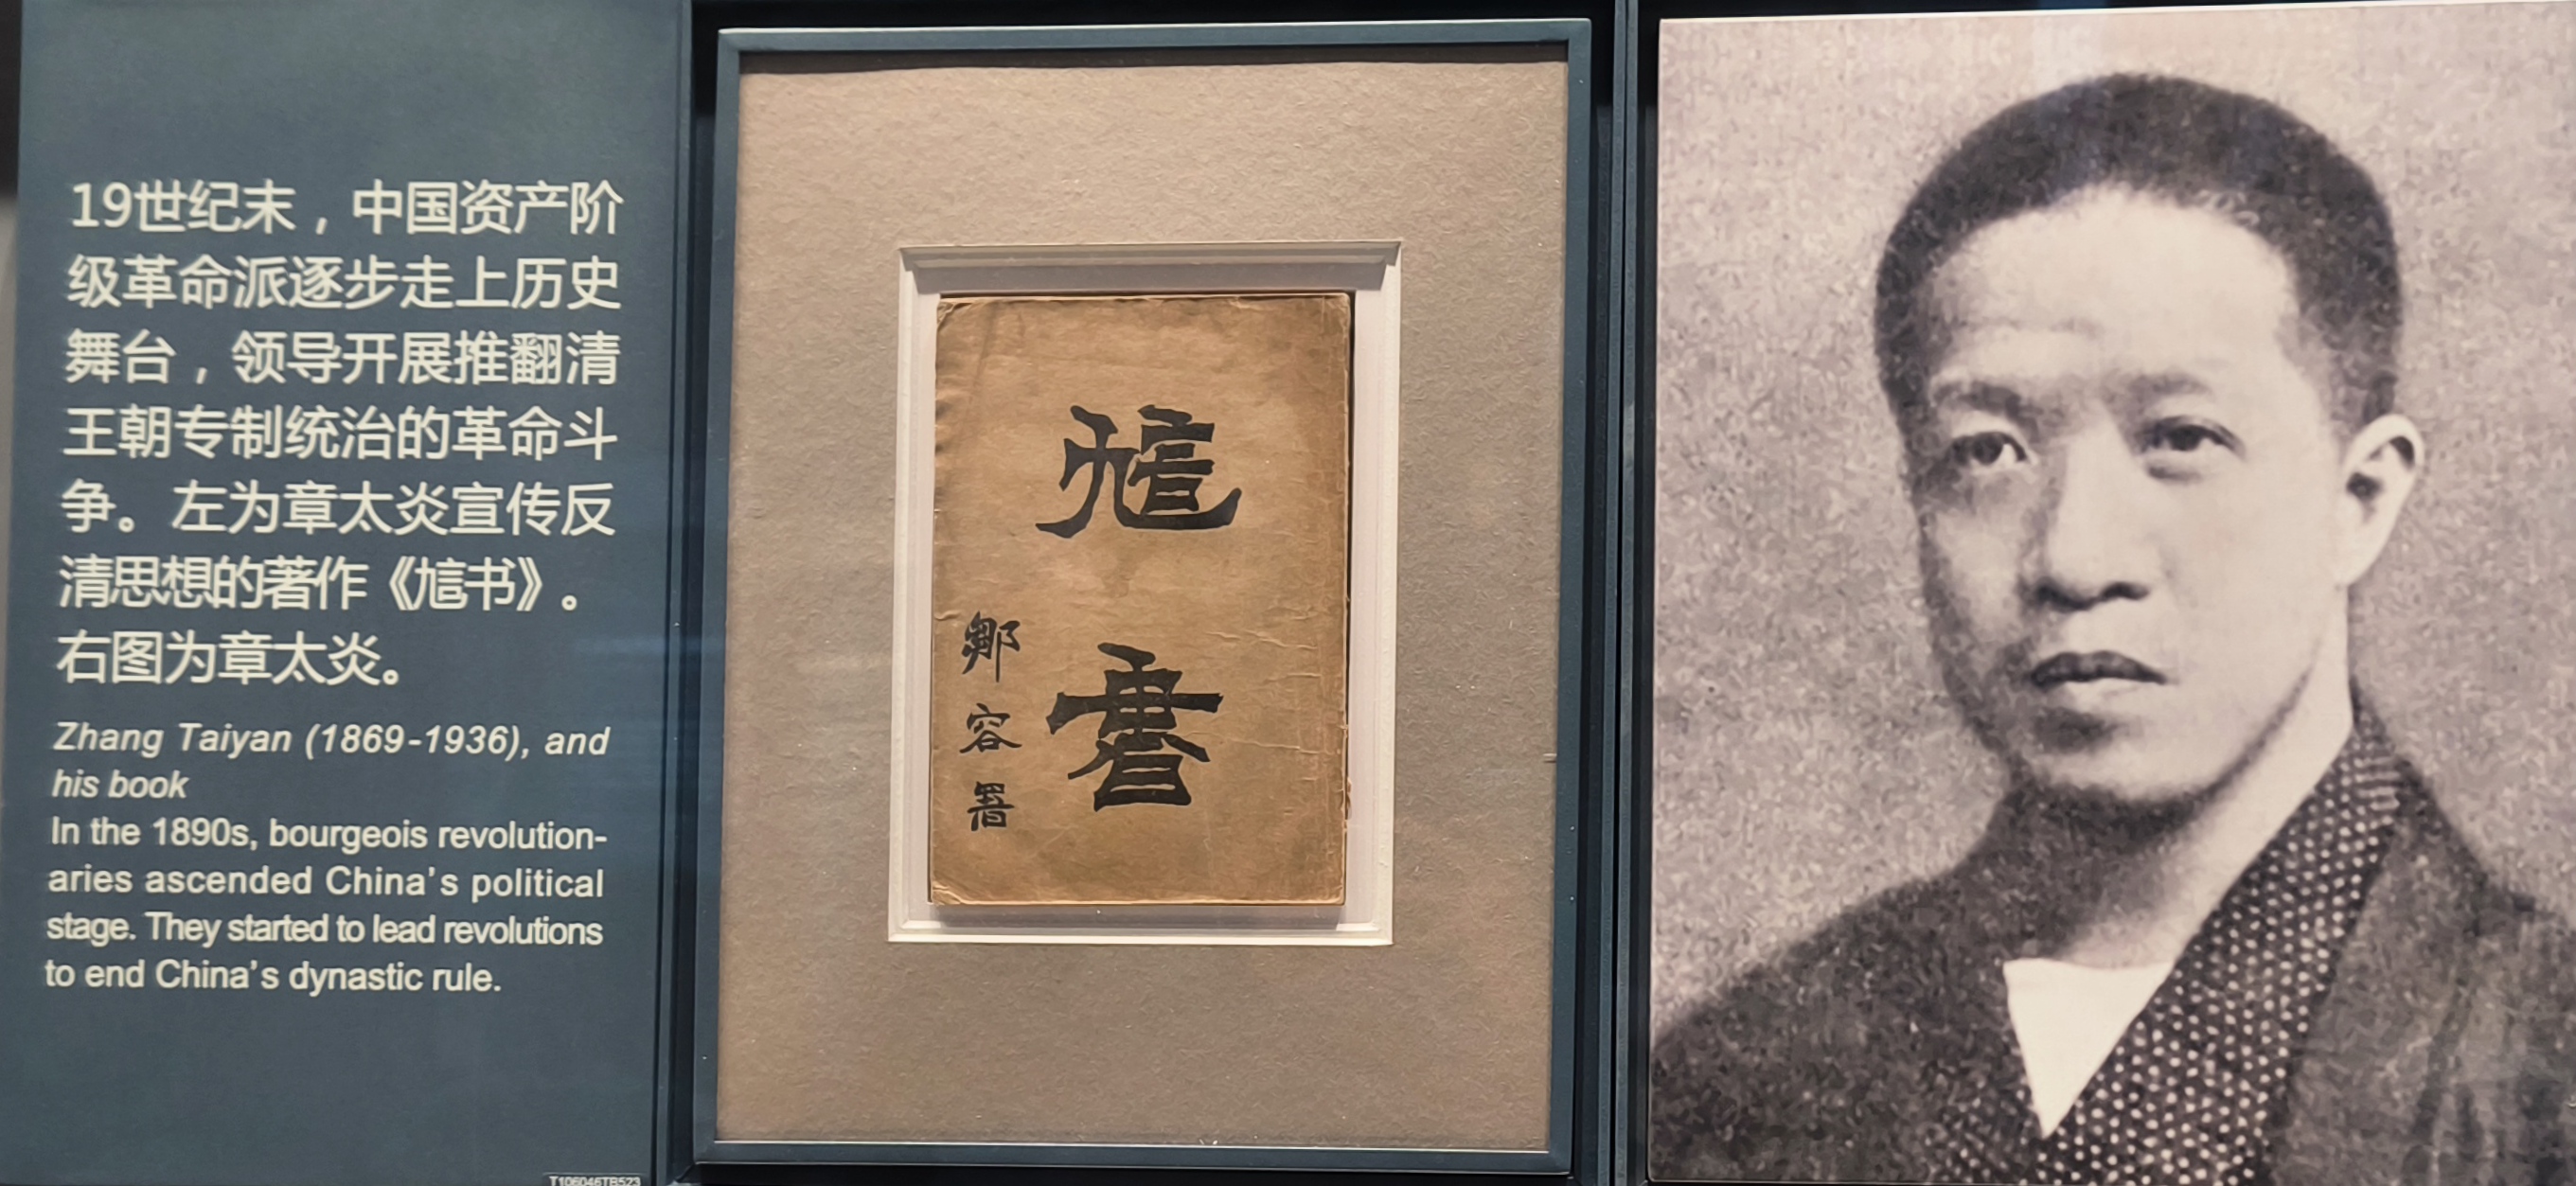 19世纪末，中国资产阶
级革命派逐步走上历史
舞台，领导开展推翻清
王朝专制统治的革命斗
争。左为章太炎宣传反
清思想的著作《訄书》。
右图为章太炎。
Zhang Taiyan (1869-1936), and
his book
In the 1890s, bourgeois revolution-
aries ascended China's political
stage. They started to lead revolutions
to end China's dynastic rule.
T106046TB523
訄書
鄒容署